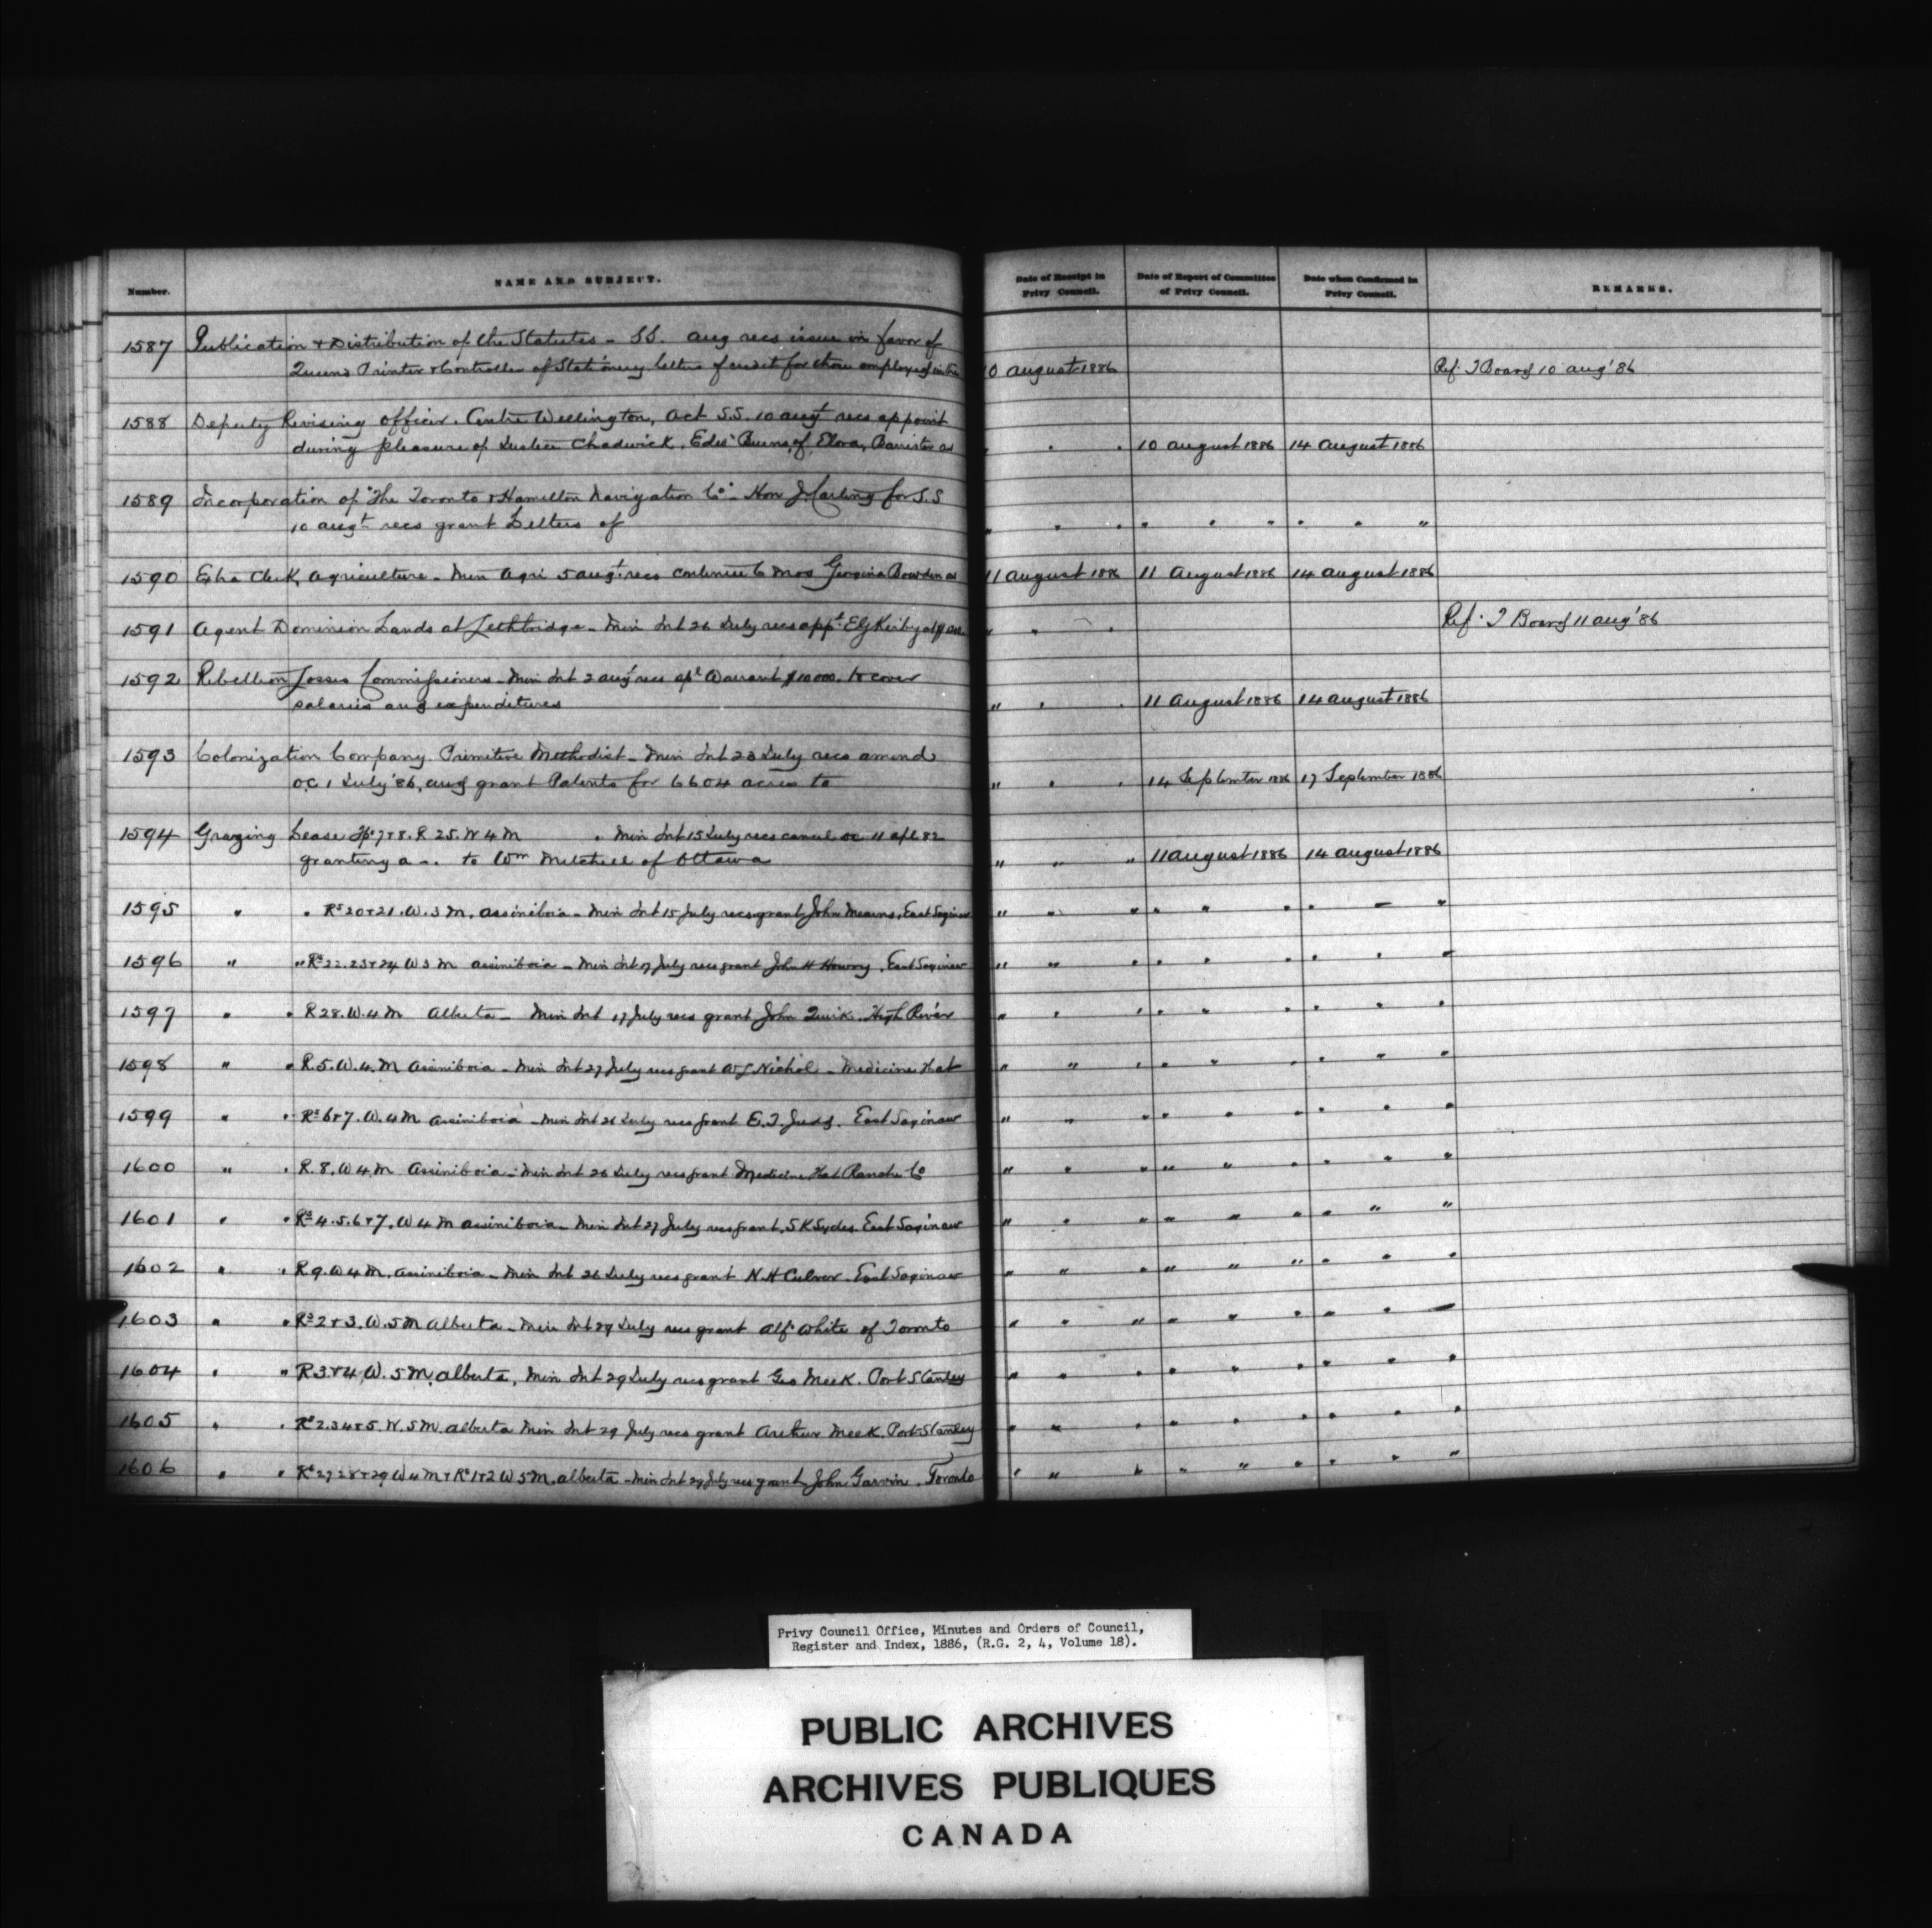 Number.
NAME AND SUBJECT.
Date of Receipt in
Privy Council.
Date of Report of Committee
of Privy Council.
Date when Confirmed in
Privy Council.
REMARKS.
1587 Publication & Distribution of the Statutes - SS. Aug recs issue in favor of
Queens Printer & Controller of Stationery letters of credit for those employed in the 10 August 1886 Ref. T Board 10 Aug '86
1588 Deputy Revising officer. Centre Wellington, Act S.S. 10 Augt recs appoint
during pleasure of Justice Chadwick, Burns, of Elora, Barrister as " " " 10 August 1886 14 August 1886
1589 Incorporation of "The Toronto & Hamilton Navigation Co" - Hon J. Carling for S.S
10 Augt recs grant Letters of " " " " " " " " "
1590 Extra Clerk, Agriculture - Min Agri 5 Augt recs continue to Mrs Georgina Bowden as 11 August 1886 11 August 1886 14 August 1886
1591 Agent Dominion Lands at Lethbridge - Min Int 26 July recs appt E G Kirby " " " Ref. T Board 11 Aug '86
1592 Rebellion Losses Commissioners - Min Int 2 Augt recs spl Warrant $10000. to cover
salaries and expenditures " " " 11 August 1886 14 August 1886
1593 Colonization Company. Primitive Methodist - Min Int 23 July recs amend
O.C 1 July '86, and grant Patents for 6604 acres to " " " 14 September 1886 17 September 1886
1594 Grazing Lease Tps 7 & 8. R 25. W 4 M . Min Int 15 July recs cancel OC 11 Apl 82
granting a - . to Wm Mitchell of Ottawa " " " 11 August 1886 14 August 1886
1595 " " Rs 20 & 21. W. 3 M. Assiniboia - Min Int 15 July recs grant John Mearns, East Saginaw " " " " " " " "
1596 " " Rs 22. 23 & 24 W 3 M Assiniboia - Min Int 17 July recs grant John H Howry. East Saginaw " " " " " " " "
1597 " " R 28. W. 4 M Alberta - Min Int 17 July recs grant John Quirk. High River " " " " " " " "
1598 " " R. 5. W. 4. M Assiniboia - Min Int 27 July recs grant Nichol - Medicine Hat " " " " " " " "
1599 " " Rs 6 & 7. W. 4 M Assiniboia - Min Int 26 July recs grant E. T. Judd. East Saginaw " " " " " " " "
1600 " " R. 8. W 4. M Assiniboia - Min Int 26 July recs grant Medicine Hat Ranche Co " " " " " " " "
1601 " " Rs 4. 5. 6 & 7, W 4 M Assiniboia - Min Int 27 July recs grant. S K Sydes. East Saginaw " " " " " " " "
1602 " " R. 9. W 4 M. Assiniboia - Min Int 26 July recs grant N H Culver. East Saginaw " " " " " " " "
1603 " " Rs 2 & 3. W. 5 M Alberta - Min Int 29 July recs grant Alf. White of Toronto " " " " " " " "
1604 " " R 3 & 4 W. 5 M. Alberta, Min Int 29 July recs grant Geo Meek. Port Stanley " " " " " " " "
1605 " " Rs 2. 3 4 & 5. W. 5 M. Alberta Min Int 29 July recs grant Arthur Meek. Port Stanley " " " " " " " "
1606 " " Rs 27 28 & 29 W 4 M & Rs 1 & 2 W 5 M. Alberta - Min Int 29 July recs grant John Garvin. Toronto " " " " " " " "
Privy Council Office, Minutes and Orders of Council,
Register and Index, 1886, (R.G. 2, 4, Volume 18).
PUBLIC ARCHIVES
ARCHIVES PUBLIQUES
CANADA